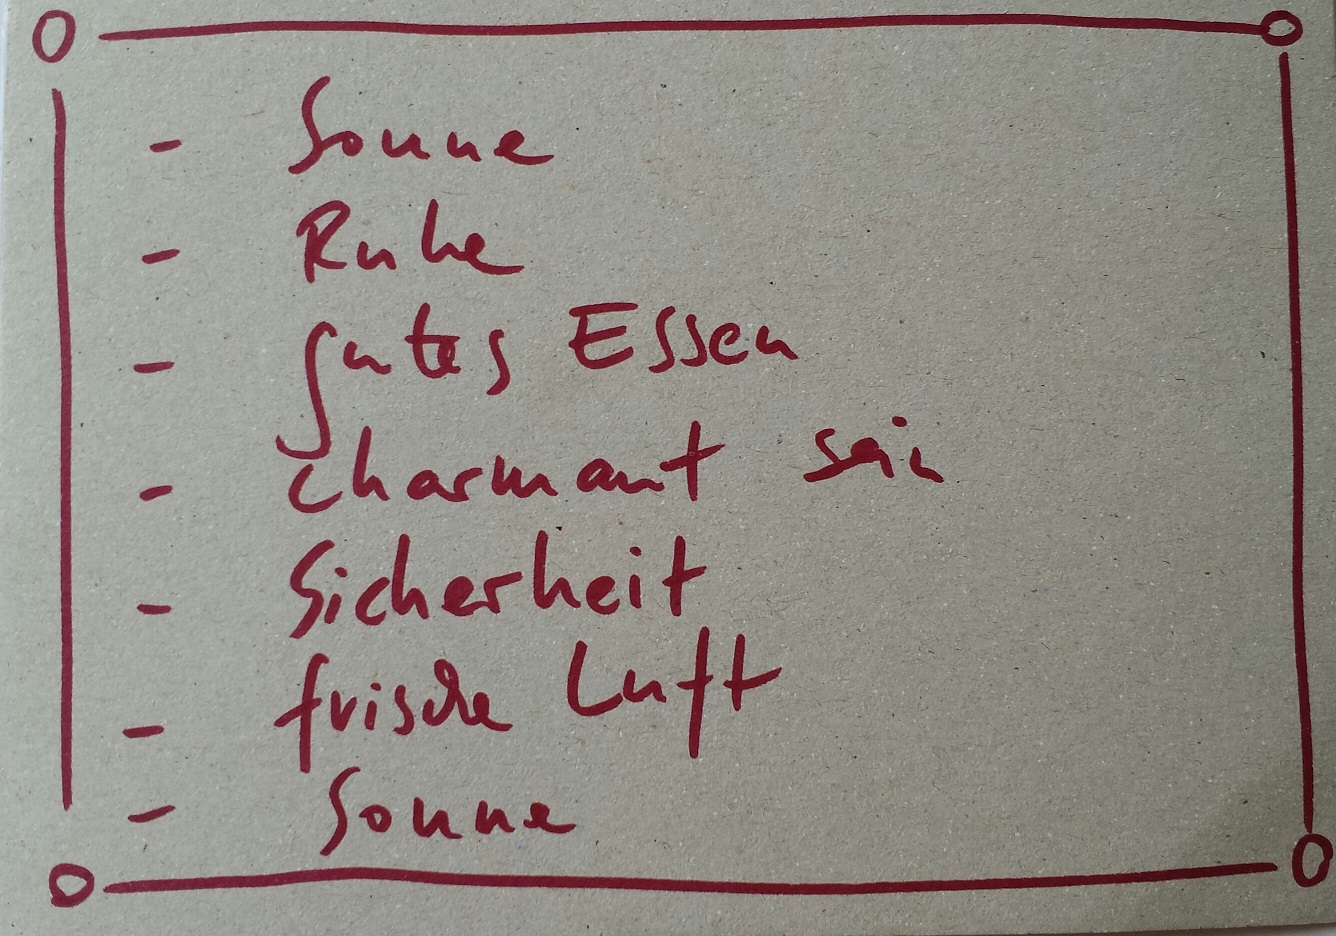 - Sonne
- Ruhe
- gutes Essen
- charmant sein
- Sicherheit
- frische Luft
- Sonne